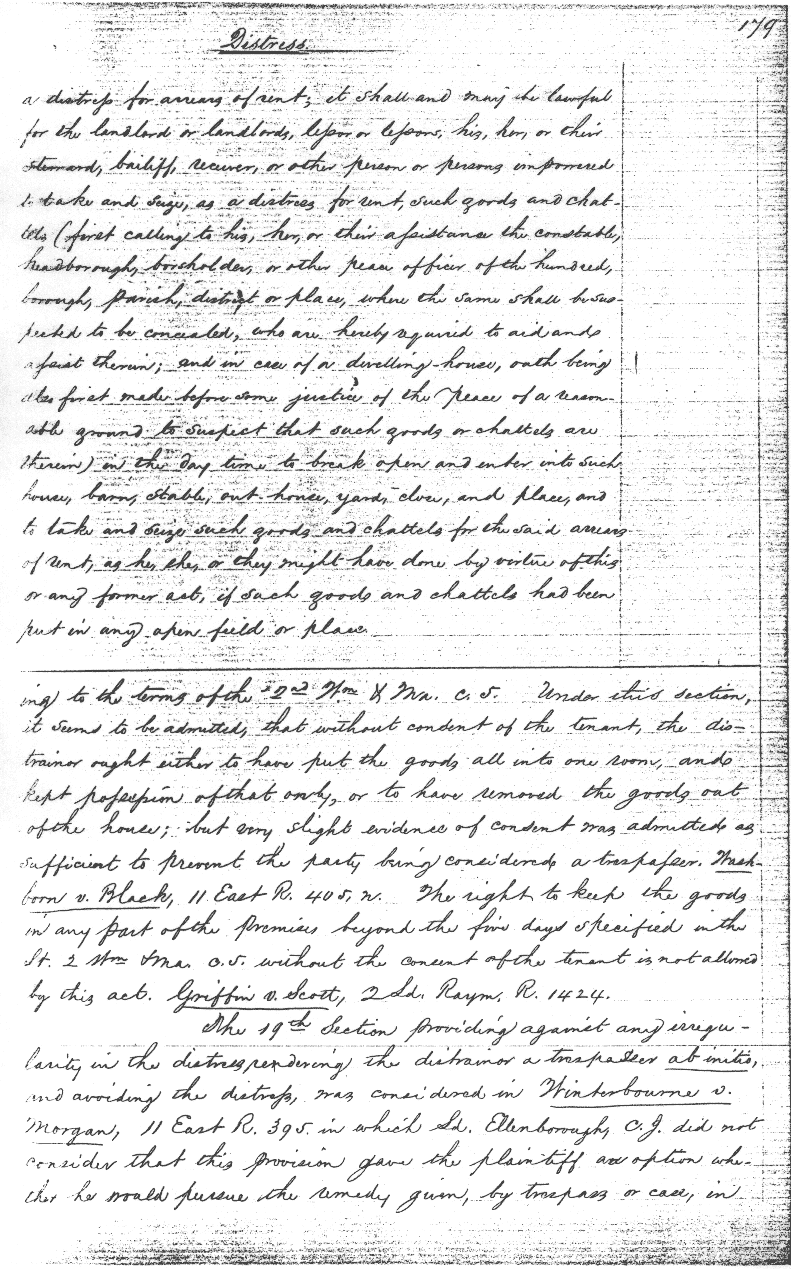 179
Distress.
a distress for arrears of rent; it shall and may be lawful
for the landlord or landlords, lessor or lessors, his, her, or their
steward, bailiff, receiver, or other person or persons impowered
to take and seize, as a distress for rent, such goods and chat-
tels (first calling to his, her, or their assistance the constable,
headborough, borsholder, or other peace officer of the hundred,
borough, parish, district or place, where the same shall be sus-
pected to be concealed, who are hereby required to aid and
assist therein; and in case of a dwelling house, oath being
also first made before some justice of the peace of a reason-
able ground to suspect that such goods or chattels are
therein) in the day time to break open and enter into such
house, barn, stable, out-house, yard, close, and place, and
to take and seize such goods and chattels for the said arrears
of rent, as he, she, or they might have done by virtue of this
or any former act, if such goods and chattels had been
put in any open field or place.
ing to the terms of the 2nd Wm & Ma. c. 5. Under this section,
it seems to be admitted, that without consent of the tenant, the dis-
trainor ought either to have put the goods all into one room, and
kept possession of that only, or to have removed the goods out
of the house; but very slight evidence of consent was admitted as
sufficient to prevent the party being considered a trespasser. Wash-
born v. Black, 11 East R. 405, n. The right to keep the goods
in any part of the premises beyond the five days specified in the
St. 2 Wm & Ma. c. 5. without the consent of the tenant is not allowed
by this act. Griffin v. Scott, 2 Ld. Raym. R. 1424.
The 19th Section providing against any irregu-
larity in the distress, rendering the distrainor a trespasser ab initio,
and avoiding the distress, was considered in Winterbourne v.
Morgan, 11 East R. 395. in which Ld. Ellenborough, C. J. did not
consider that this provision gave the plaintiff an option whe-
ther he would pursue the remedy given, by trespass or case, in